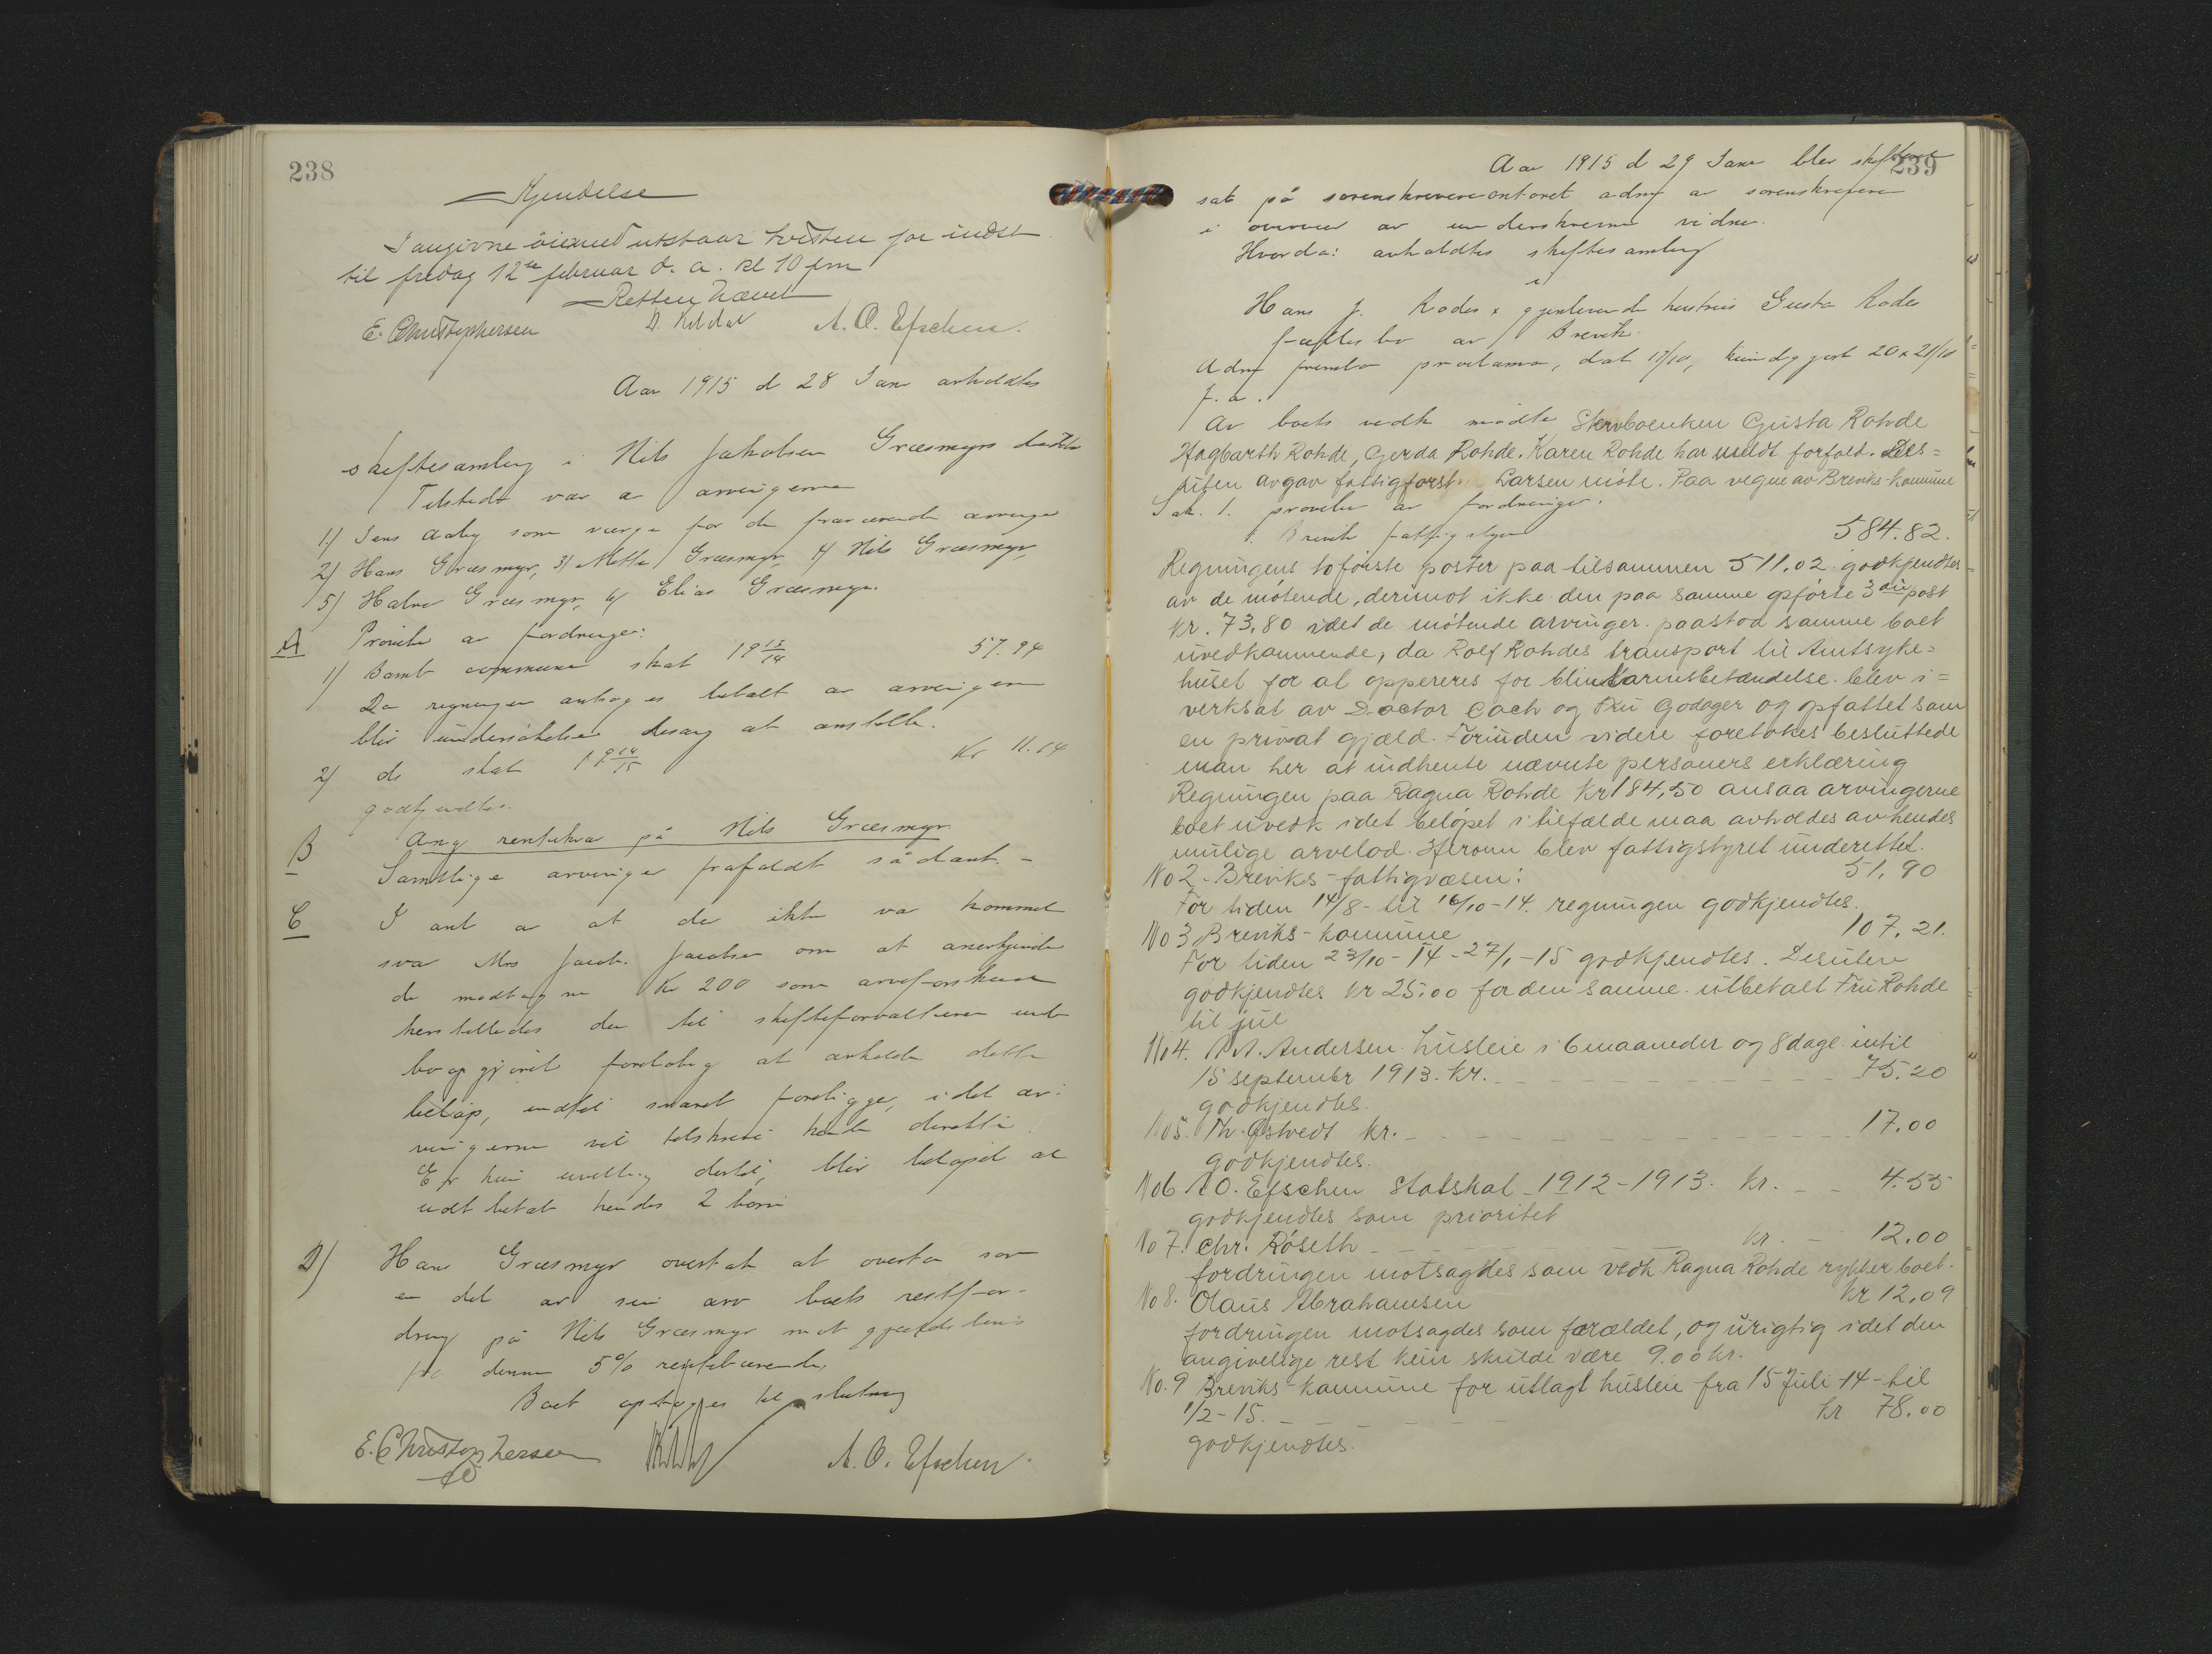 238
Kjendelse
I angivne öiemed utstaar tvisten for indst
til fredag 12te februar d. a. kl 10 fm
Retten hævet
E. Christophersen A. O. Efschen.
Aar 1915 d 28 Jan avholdtes
skiftesamling i Nils Jakobsen Græsmyrs
Tilstede var av arvingerne
1) Jens Aaby som værge for de fraværende arvinge
2) Hans Græsmyr, 3) Mette Græsmyr, 4) Nils Græsmyr,
5) Halvor Græsmyr, 6) Elias Græsmyr.
A Prövelse av fordringer:
1) Bamble commune skat 19 13/14 57.94
Da regningen antages betalt av arvingerne
blir undersökelse desang at anstille.
2) do skat 19 14/15 Kr 11.14
godkjendtes.
B Ang på Nils Græsmyr
Samtlige arvinger frafaldt sådant. -
C I anl av at der ikke var kommet
svar Mrs Jacob Jacobsen om at anerkjende
de modtagne Kr 200 som arveforskud
henstilledes der til skifteforvalteren ved
boopgjöret foreløbig at avholde dette
beløp, indtil svaret foreligge, idet ar-
vingerne vil tilskrive hende direkte.
Er hun uvillig dertil, blir beløpet at
udbetale hendes 2 børn
D) Hans Græsmyr at overta som
en del av sin arv boets restfor-
dring på Nils Græsmyr mot gjældsbevis
fra denne 5% rentebærende,
Boet optages til slutning
E. Christophersen A. O. Efschen.
239
Aar 1915 d 29 Jan blev skifteret
sat på sorenskriverecontoret adm av sorenskriveren
i overvær av underskrevne vidner.
Hvorda: avholdtes skiftesamling
i
Hans J. Rodes & gjenlevende hustrus Gusta Rodes
fællesbo av Brevik
Adm fremla proclama, dat 17/10, kundgjort 20 & 21/10
f. a.
Av boets vedk mødte Stervboenken Gusta Rohde
Hagbarth Rohde, Gerda Rohde. Karen Rohde har meldt forfald. Des=
uten avgav fattigforst. Larsen möte. Paa vegne av Breviks-kommune
Sak. 1. prøvelse av fordringer.
1. Brevik fattigstyre 584.82.
Regningens to förste poster paa tilsammen 511.02 godkjendtes
av de mötende, derimot ikke den paa samme opförte 3die post
kr. 73,80 idet de mötende arvinger paastod samme boet
uvedkommende, da Rolf Rohdes transport til Amtsyke=
huset for at oppereres for blindtarmsbetændelse blev i=
verksat av Doctor Coch og Fru Godager og opfattet som
en privat gjæld. Forinden videre foretokes besluttede
man her at indhente nævnte personers erklæring
Regningen paa Ragna Rohde Kr 184,50 ansaa arvingerne
boet uvedk idet belöpet i tilfælde maa avholdes av hendes
mulige arvelod. Herom blev fattigstyret underettet.
No 2. Breviks-fattigvæsen: 51,90
For tiden 14/8 - til 16/10 - 14. regningen godkjendtes.
No 3 Breviks-kommune 107.21.
For tiden 23/10 - 14 - 27/1 - 15 godkjendtes. Desuten
godkjendtes kr 25.00 for den samme utbetalt Fru Rohde
til jul
No 4. A. Andersen husleie i 6 maaneder og 8 dage intil
15 september 1913. kr. 75.20
godkjendtes.
No 5. Th. Østvedt kr. 17.00
godkjendtes.
No 6 A O. Efschen Statskat - 1912 - 1913. kr. 4.55
godkjendtes som prioritet
No 7. Chr. Röseth kr. 12.00
fordringen motsagdes som vedk Ragna Rohde rykker boet.
No 8. Olaus Abrahamsen kr 12,09
fordringen motsagdes som forældet, og urigtig idet den
angivelige rest kun skulde være 9.00 kr.
No. 9 Breviks-kommune for utlagt husleie fra 15 Juli 14 - til
1/2 - 15. kr 78.00
godkjendtes.